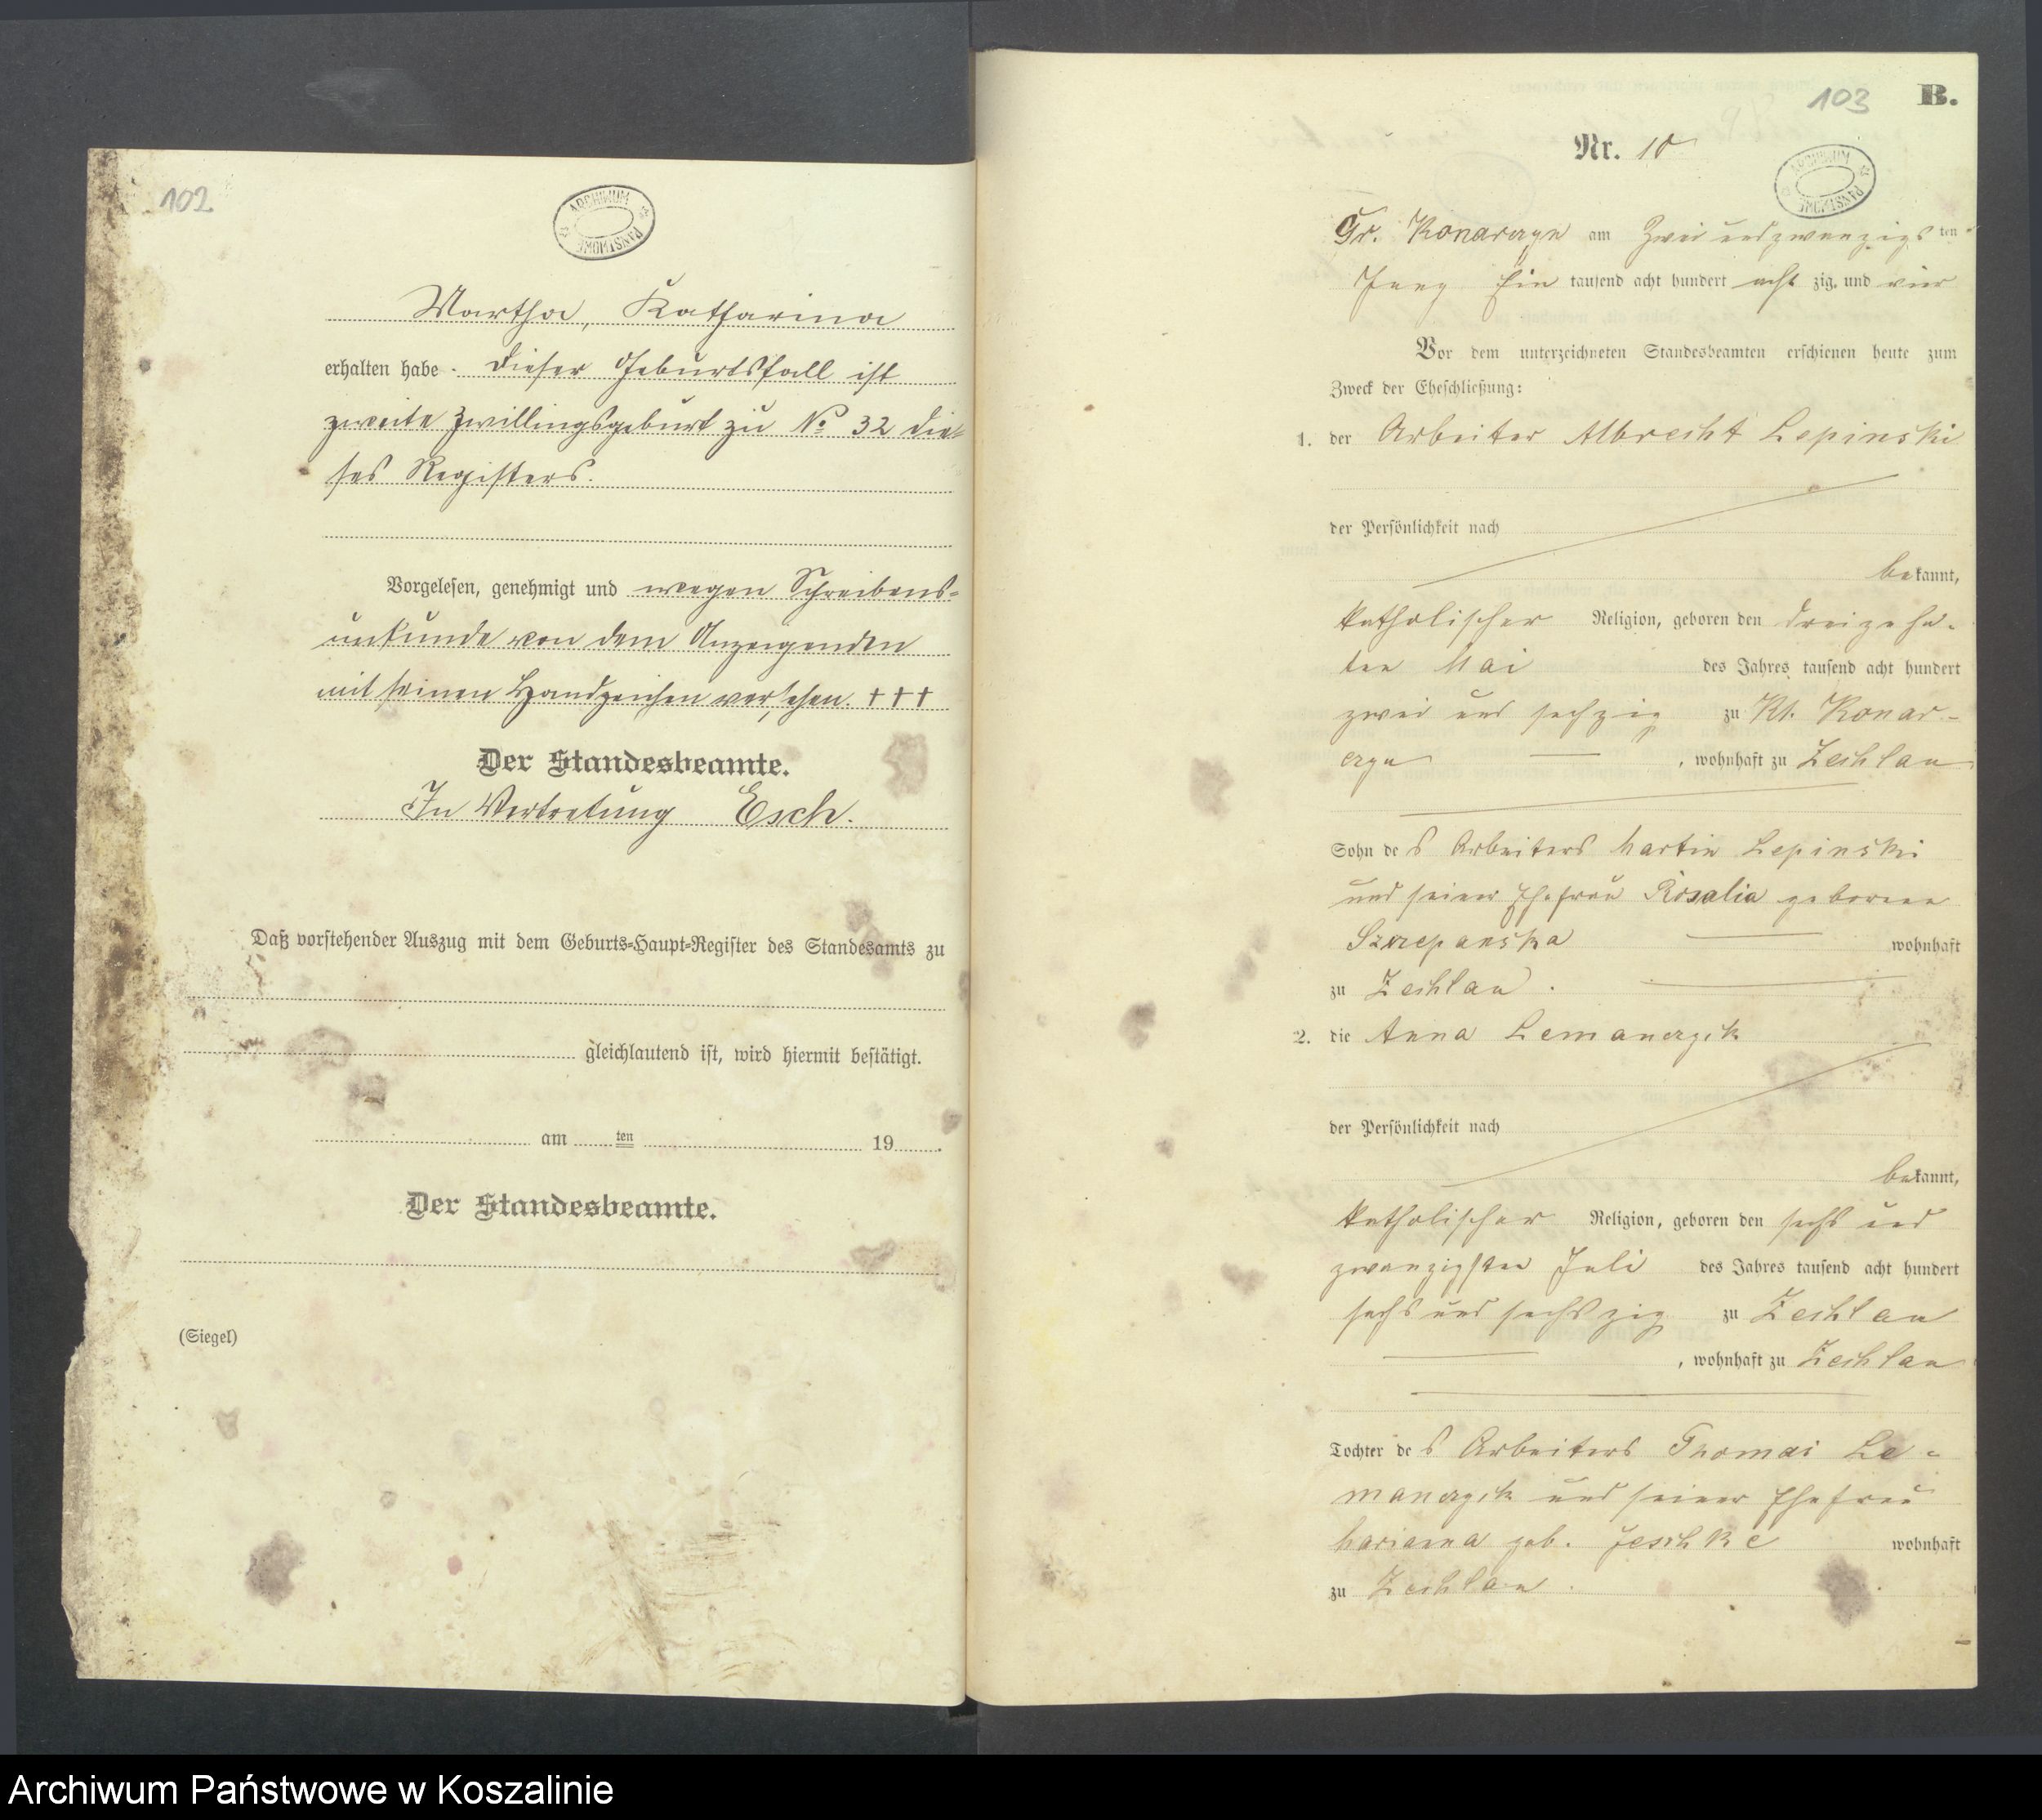 102
ARCHIWUM PAŃSTWOWE
Martha, Katharina
erhalten habe. Dieser Geburtsfall ist
zweite Zwillingsgeburt zu No 32 die-
ses Registers.
Vorgelesen, genehmigt und wegen Schreibens-
unkunde von dem Anzeigenden
mit seinen Handzeichen versehen. +++
Der Standesbeamte.
In Vertretung Esch.
Daß vorstehender Auszug mit dem Geburts-Haupt-Register des Standesamts zu
gleichlautend ist, wird hiermit bestätigt.
am ten 19 .
Der Standesbeamte.
(Siegel)
103 B.
Nr. 10
ARCHIWUM PAŃSTWOWE
Gr. Konarczyn am Zwei und zwanzigs ten
Ein tausend acht hundert acht zig und vier
Vor dem unterzeichneten Standesbeamten erschienen heute zum
Zweck der Eheschließung:
1. der Arbeiter Albrecht Lepinski
der Persönlichkeit nach
bekannt,
katholischer Religion, geboren den dreizehn-
ten Mai des Jahres tausend acht hundert
zwei und sechzig zu Kl. Konar-
czyn , wohnhaft zu Zechlau
Sohn des Arbeiters Martin Lepinski
und seiner Ehefrau Rosalia geborene
Szczepanska wohnhaft
zu Zechlau .
2. die Anna Lemanczyk
der Persönlichkeit nach
bekannt,
katholischer Religion, geboren den sechs und
zwanzigsten Juli des Jahres tausend acht hundert
sechs und sechszig zu Zechlau
, wohnhaft zu Zechlau
Tochter des Arbeiters Thomas Le-
manczyk und seiner Ehefrau
Marianna geb. Jeschke wohnhaft
zu Zechlau .
Archiwum Państwowe w Koszalinie